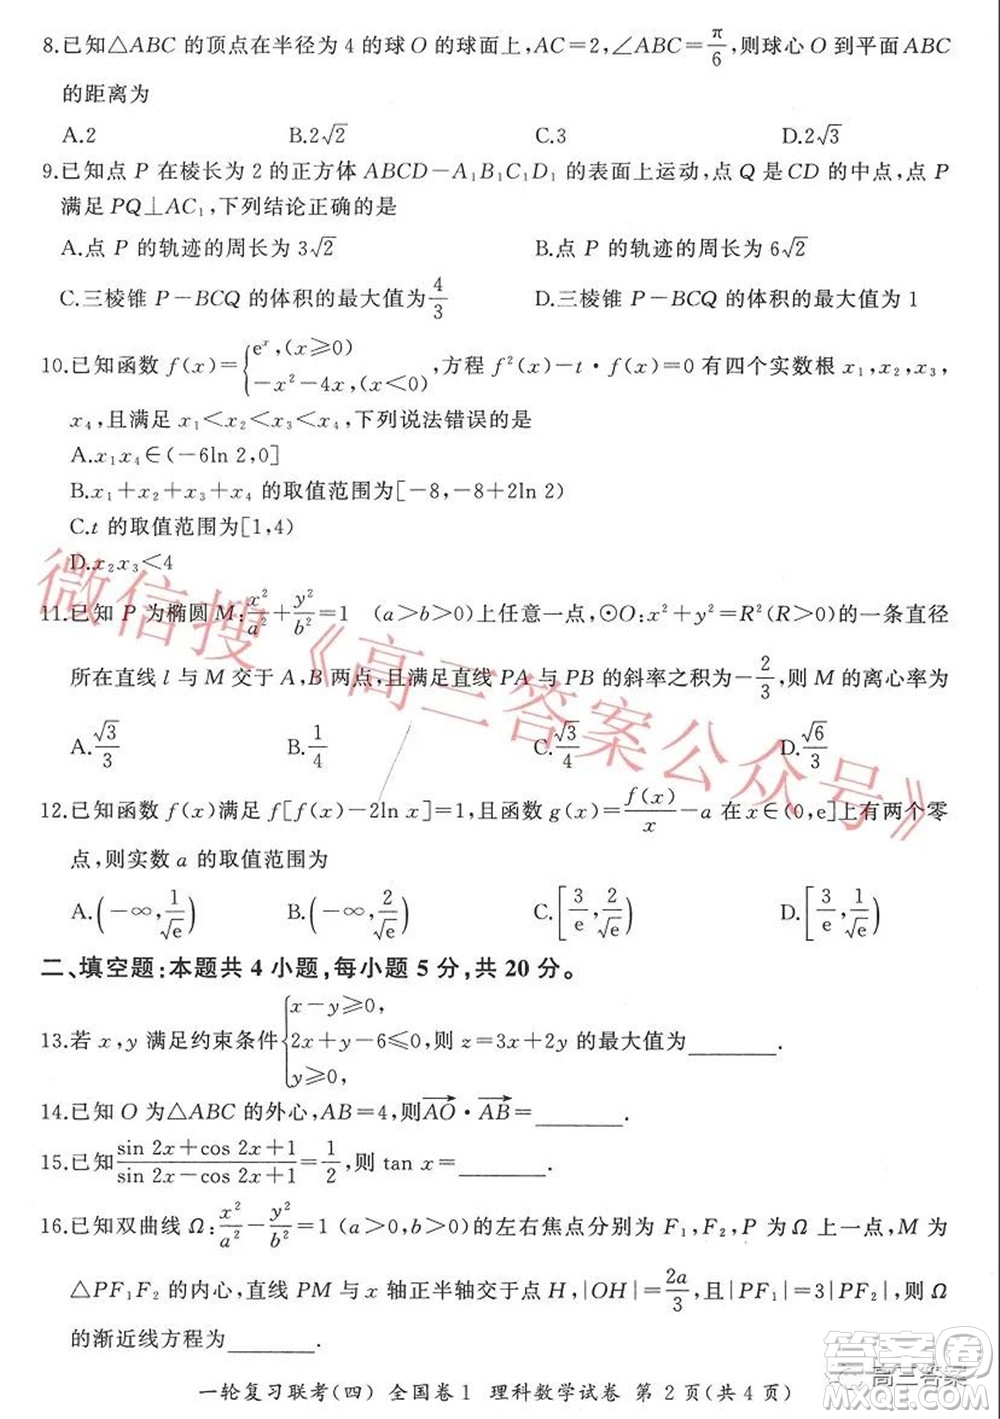 8.已知△ABC 的顶点在半径为 4 的球 O 的球面上,AC=2,∠ABC=π/6,则球心 O 到平面 ABC
的距离为
A.2 B.2√2 C.3 D.2√3
9.已知点 P 在棱长为 2 的正方体 ABCD-A₁B₁C₁D₁ 的表面上运动,点 Q 是 CD 的中点,点 P
满足 PQ⊥AC₁,下列结论正确的是
A.点 P 的轨迹的周长为 3√2 B.点 P 的轨迹的周长为 6√2
C.三棱锥 P-BCQ 的体积的最大值为 4/3 D.三棱锥 P-BCQ 的体积的最大值为 1
10.已知函数 f(x)={eˣ,(x≥0) -x²-4x,(x<0),方程 f²(x)-t·f(x)=0 有四个实数根 x₁,x₂,x₃,
x₄,且满足 x₁<x₂<x₃<x₄,下列说法错误的是
A.x₁x₄∈(-6ln 2,0]
B.x₁+x₂+x₃+x₄ 的取值范围为[-8,-8+2ln 2)
C.t 的取值范围为[1,4)
D.x₂x₃<4
11.已知 P 为椭圆 M:x²/a²+y²/b²=1 (a>b>0)上任意一点,⊙O:x²+y²=R²(R>0)的一条直径
所在直线 l 与 M 交于 A,B 两点,且满足直线 PA 与 PB 的斜率之积为-2/3,则 M 的离心率为
A.√3/3 B.1/4 C.√3/4 D.√6/3
12.已知函数 f(x)满足 f[f(x)-2ln x]=1,且函数 g(x)=f(x)/x-a 在 x∈(0,e]上有两个零
点,则实数 a 的取值范围为
A.(-∞,1/√e) B.(-∞,2/√e) C.[3/e,2/√e) D.[3/e,1/√e)
二、填空题:本题共 4 小题,每小题 5 分,共 20 分。
13.若 x,y 满足约束条件{x-y≥0, 2x+y-6≤0, y≥0,则 z=3x+2y 的最大值为______.
14.已知 O 为△ABC 的外心,AB=4,则AO→·AB→=______.
15.已知(sin 2x+cos 2x+1)/(sin 2x-cos 2x+1)=1/2,则 tan x=______.
16.已知双曲线 Ω:x²/a²-y²/b²=1(a>0,b>0)的左右焦点分别为 F₁,F₂,P 为 Ω 上一点,M 为
△PF₁F₂ 的内心,直线 PM 与 x 轴正半轴交于点 H,|OH|=2a/3,且|PF₁|=3|PF₂|,则 Ω
的渐近线方程为______.
一轮复习联考(四) 全国卷 1 理科数学试卷 第 2 页(共 4 页)
微信搜《高三答案公众号》
答案圈
高三答案
MXQE.COM